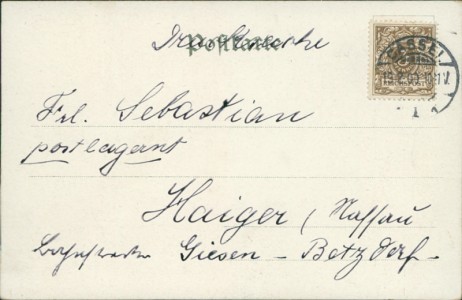 Drucksache
Postkarte
CASSEL
Frl. Sebastian
postlagernd
Haiger (Nassau
Giesen - Betzdorf